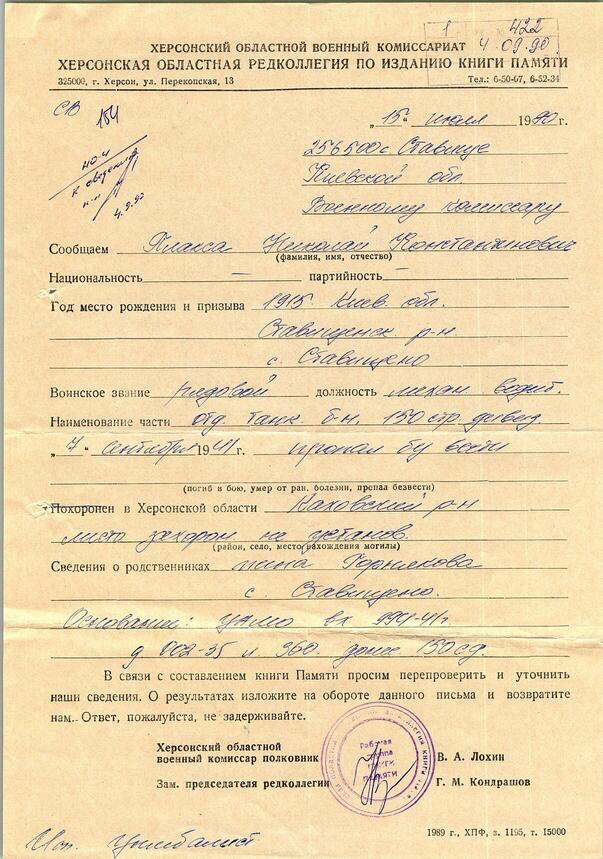 1 № 422
4.09.90
ХЕРСОНСКИЙ ОБЛАСТНОЙ ВОЕННЫЙ КОМИССАРИАТ
ХЕРСОНСКАЯ ОБЛАСТНАЯ РЕДКОЛЛЕГИЯ ПО ИЗДАНИЮ КНИГИ ПАМЯТИ
325000, г. Херсон, ул. Перекопская, 13 Тел.: 6-50-07, 6-52-34
СВ 154
„15“ июля 1990 г.
НО-4
к сведению
4.9.90
256500 с. Ставище
Киевской обл.
Военному комиссару
Сообщаем Плакса Николай Константинович
(фамилия, имя, отчество)
Национальность — партийность —
Год место рождения и призыва 1915. Киев. обл.
Ставищенск. р-н
с. Ставищено
Воинское звание рядовой должность механ. водит.
Наименование части отд. танк. б-н. 150 стр. дивиз.
„7“ сентября 1941 г. пропал бу вести
(погиб в бою, умер от ран. болезни, пропал безвести)
Похоронен в Херсонской области Каховский р-н
место захорон. не установ.
(район, село, место нахождения могилы)
Сведения о родственниках Горникова
с. Ставищено.
Основании: ЦАМО вх 994-41г.
д 002-35 л 360. 150 сд.
В связи с составлением книги Памяти просим перепроверить и уточнить
наши сведения. О результатах изложите на обороте данного письма и возвратите
нам. Ответ, пожалуйста, не задерживайте.
Херсонский областной
военный комиссар полковник В. А. Лохин
Зам. председателя редколлегии Г. М. Кондрашов
Рабочая
группа
КНИГИ
ПАМЯТИ
1989 г., ХПФ, з. 1195, т. 15000
Исп. Цимбалист